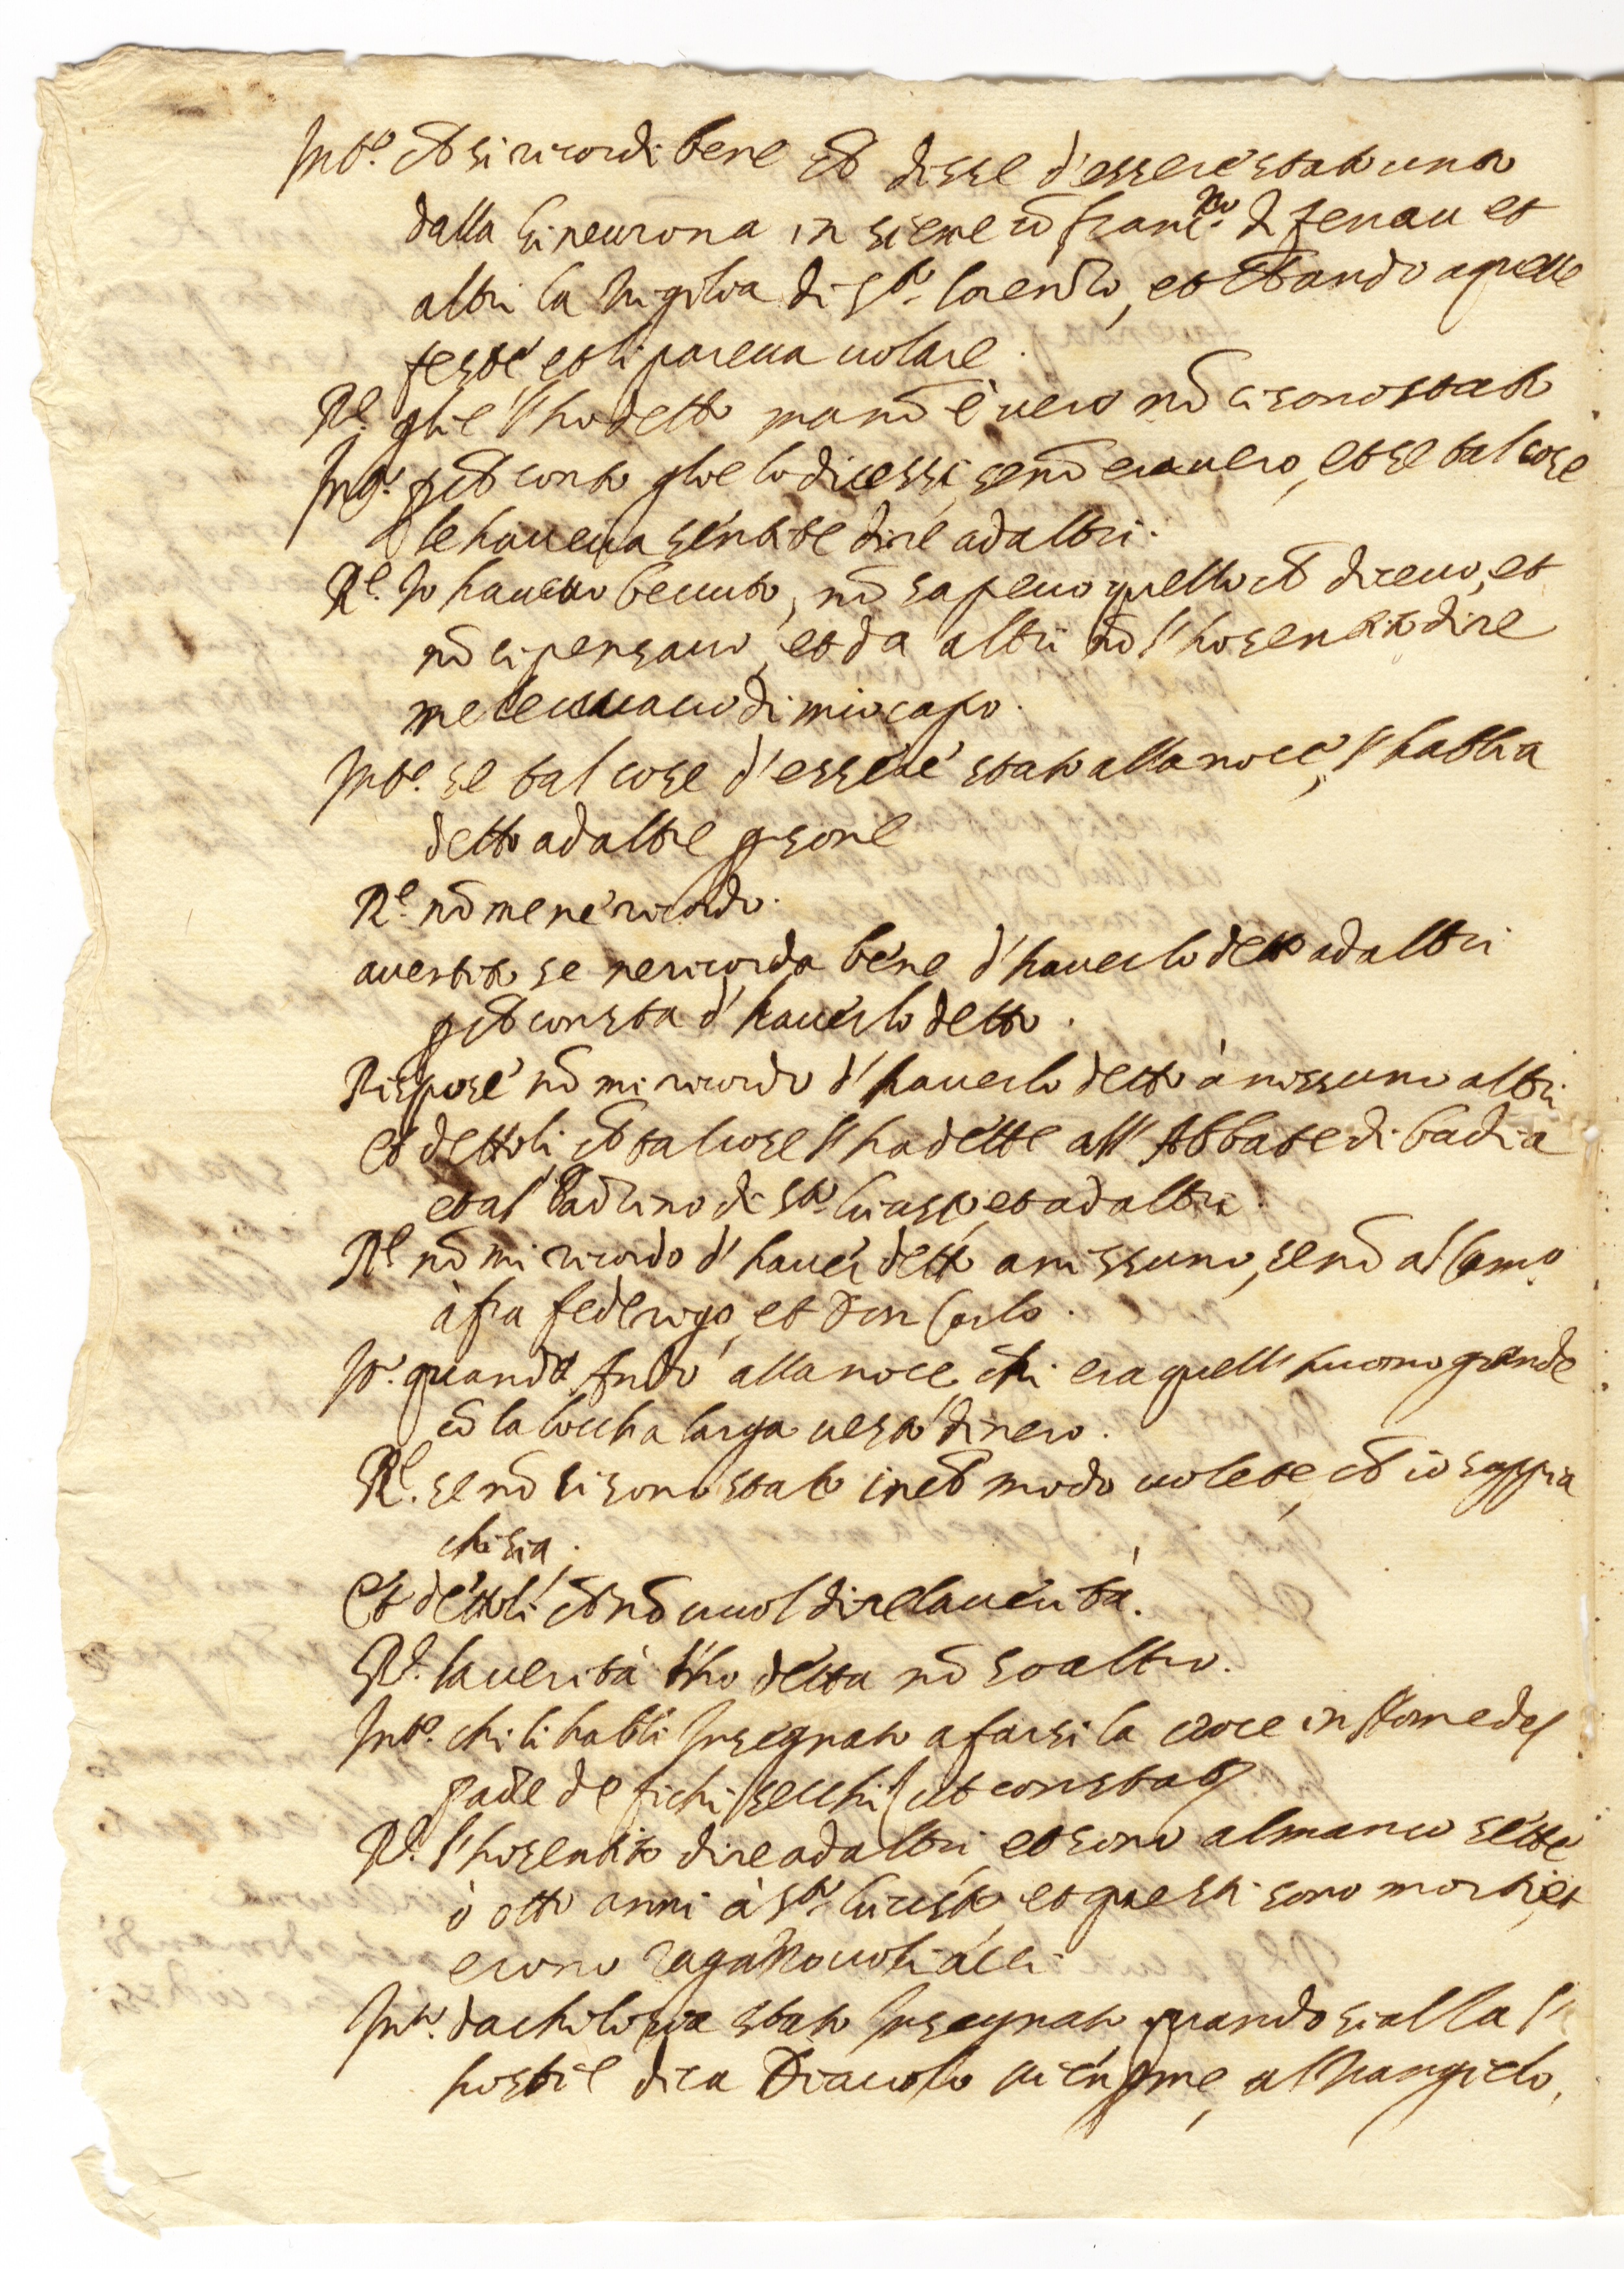 Int.o ch si ricordi bene ch disse d'essere stato una
dalla Gineurona in sieme cõ Franc.co di Fenau et
altri la Vigilia di S.to Lorenzo, et stando a quelle
feste et li pareua uolare.
R.e glie l'ho detto ma nõ è uero nõ ci sono stato
Int.o p ch conto glie lo dicessi se nõ era uero, et se tal cose
le haueua sentite dire ad altri.
R.e Io haueuo beuuto, nõ sapeuo quello ch diceuo, et
nõ ci pensauo, et da altri nõ l'ho sentito dire
me le cauauo di mio capo.
Int.o se tal cose d'essere stato alla noce, l'habbia
detto ad altre psone
R.e nõ me ne ricordo.
auertito se ne ricorda bene d'hauerlo detto ad altri
p ch consta d'hauerlo detto.
Rispose nõ mi ricordo d'hauerlo detto à nissuno altri
et dettoli ch tal cose l'ha dette all'Abbate di badia
et al Padrino di S.to Giusto, et ad altri.
R.e nõ mi ricordo d'hauer detto a nissuno, se nõ al Cam.o
à fra Federigo, et Don Carlo.
Int.o quando Andò alla noce, chi era quell'huomo grande
cõ la boccha larga uestito di nero.
R.e se nõ ci sono stato in ch modo uolete, ch io sappia
chi sia.
Et dettoli ch nõ uuol dire la uerità.
R.e la uerità l'ho detta nõ so altro.
Int.o chi li habbi Insegnato a farsi la croce in Nome del
padre de fichi secchi (ut constat)
R.e l'ho sentito dire ad altri et sono almanco sette
ò otto anni à S.to Giusto, et questi sono morti, et
erono ragazzouoli
Int.o da chi li sia stato Insegnato quando si alza l'
hostie dica Diauolo uien p me, al Vangielo,